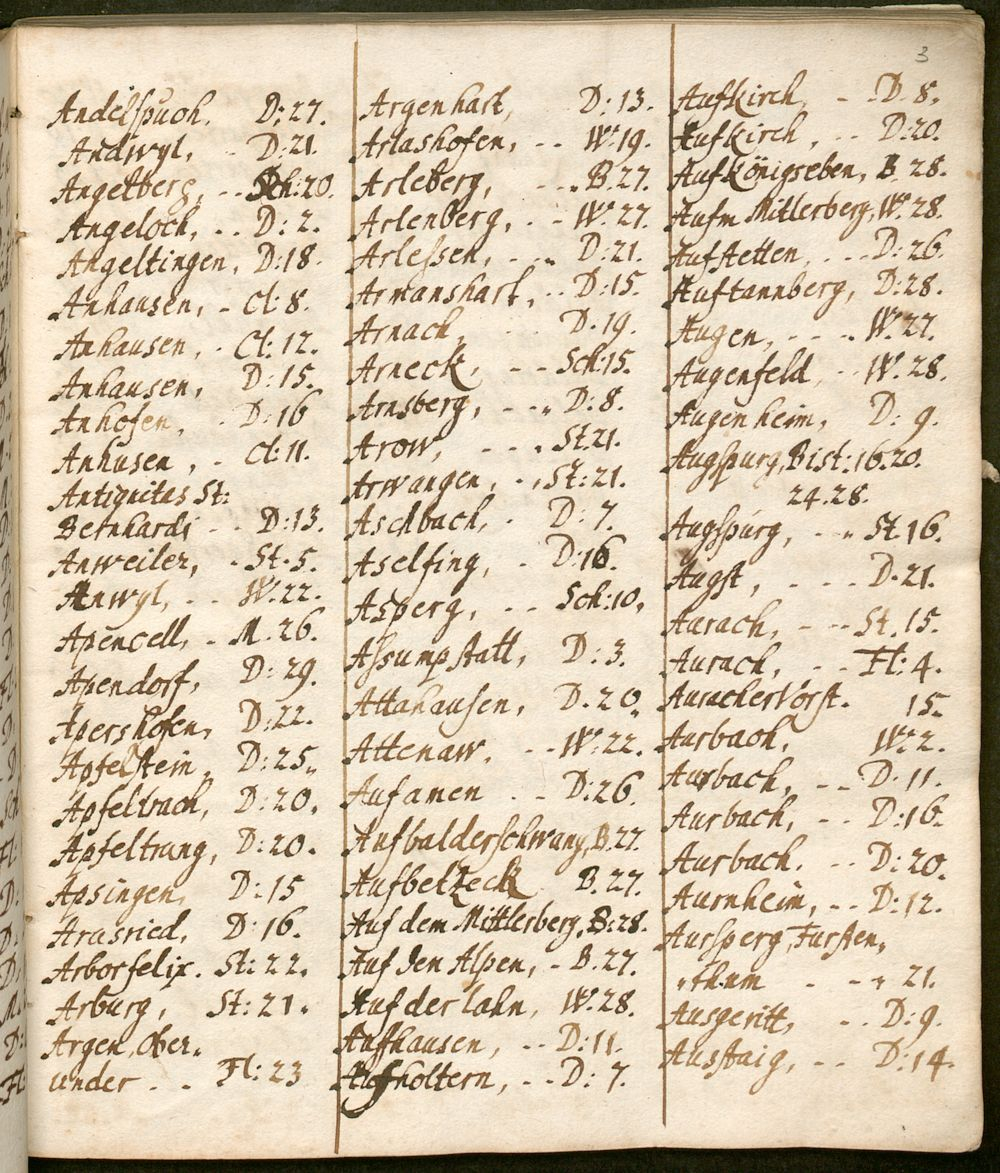 3
Andelspuoh. D: 27.
Andwyl, . D: 21.
Angelberg, . . Sch: 20.
Angeloch, . . D: 2.
Angeltingen, D: 18.
Anhausen, - Cl: 8.
Anhausen, . Cl: 12.
Anhausen, D: 15.
Anhofen, . D: 16
Anhusen, . Cl: 11.
Antiquitas St:
Bernhardi - - D: 13.
Anweiler, . St. 5.
Anwyl, . . W. 22.
Apencell, . M. 26.
Apendorf, D: 29.
Apershofen, D: 22.
Apfelstein, D: 25.
Apfeltrach, D: 20.
Apfeltrang, D: 20.
Apsingen, D: 15
Arasried, D: 16.
Arbor felix. St: 22.
Arburg, St: 21.
Argen, Ober-
under . . Fl: 23
Argenhart, D: 13.
Arlashofen, . . W. 19.
Arleberg, . . . B. 27.
Arlenberg, . . W. 27.
Arlessen, . . . D: 21.
Armanshart, . . D: 15.
Arnach, . D. 19.
Arneck, . . . Sch: 15.
Arnsberg, . . . D: 8.
Arow, . . . St. 21.
Arwangen, . . St: 21.
Aschbach, . D: 7.
Aselfing, . D. 16.
Asperg, . . Sch: 10.
Assumpstatt, D: 3.
Attahausen, D. 20.
Attenaw, . . W. 22.
Aufamen . . D: 26.
Aufbalderschwang, B. 27.
Aufbelzeck B. 27.
Auf dem Mittlerberg, B: 28.
Auf den Alpen, . B. 27.
Auf der lahn, W. 28.
Aufhausen, . . D: 11.
Aufholtern, . . D: 7.
Aufkirch, . . D. 8.
Aufkirch, . . D: 20.
Aufkönigreben, B 28.
Aufm Mitlerberg, W. 28.
Aufstetten, . . . D: 26.
Auftannberg, D: 28.
Augen, . . . . W. 27.
Augenfeld, . . W. 28.
Augenheim, D: 9.
Augspurg, Bist: 16. 20.
24. 28.
Augspurg, . . . St. 16.
Augst, . . . . D. 21.
Aurach, . . . St. 15.
Aurach, . . Fl: 4.
Auracher Vorst. 15.
Aurbach, W. 2.
Aurbach, . . D: 11.
Aurbach, . . D: 16.
Aurbach. . . D: 20.
Aurnheim, . . D: 12.
Aursperg, Fursten-
thum . . . 21.
Ausgeritt, . . D: 9.
Austaig, . . D: 14.